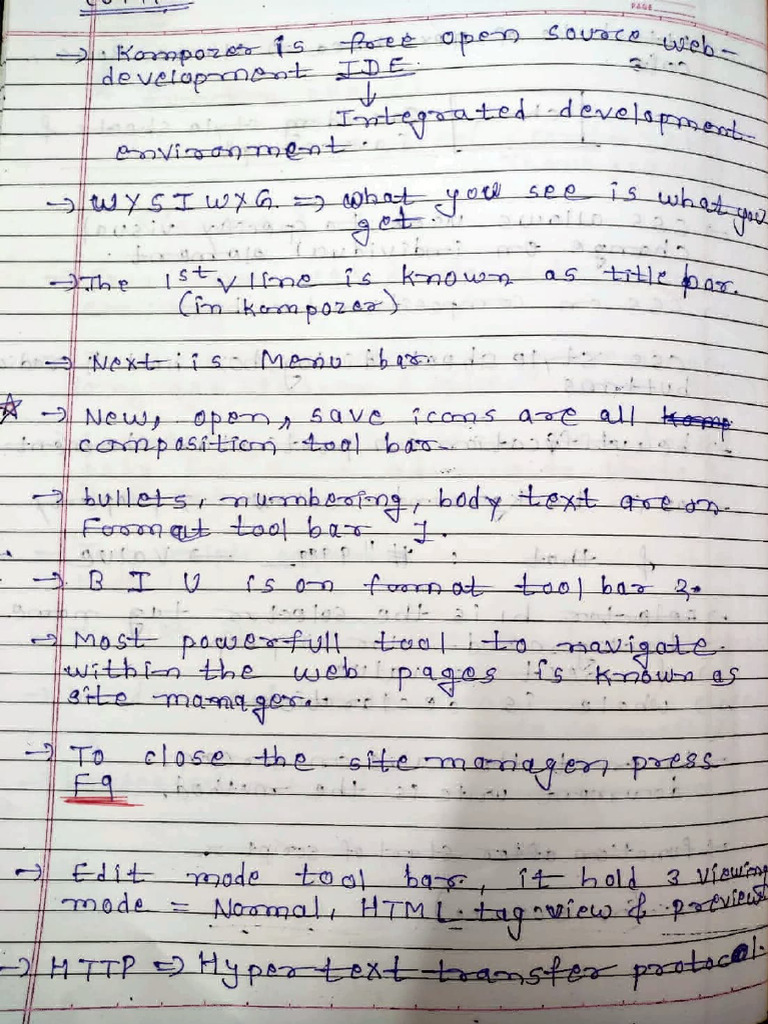 PAGE
→ Kompozer is free open source web-
development IDE
↓
Integrated development
environment.
→ WYSIWYG ⇒ what you see is what you
get.
→ The 1st line is known as title bar.
(in Kompozer)
→ Next is Menu bar.
☆ → New, open, save icons are all
composition tool bar.
→ bullets, numbering, body text are on
Format tool bar 1.
→ B I U is on format tool bar 2.
→ Most powerfull tool to navigate
within the web pages is known as
site manager.
→ To close the site manager press
F9
→ Edit mode tool bar, it hold 3 viewing
mode = Normal, HTML tag view & preview
→ HTTP ⇒ Hyper text transfer protocol.